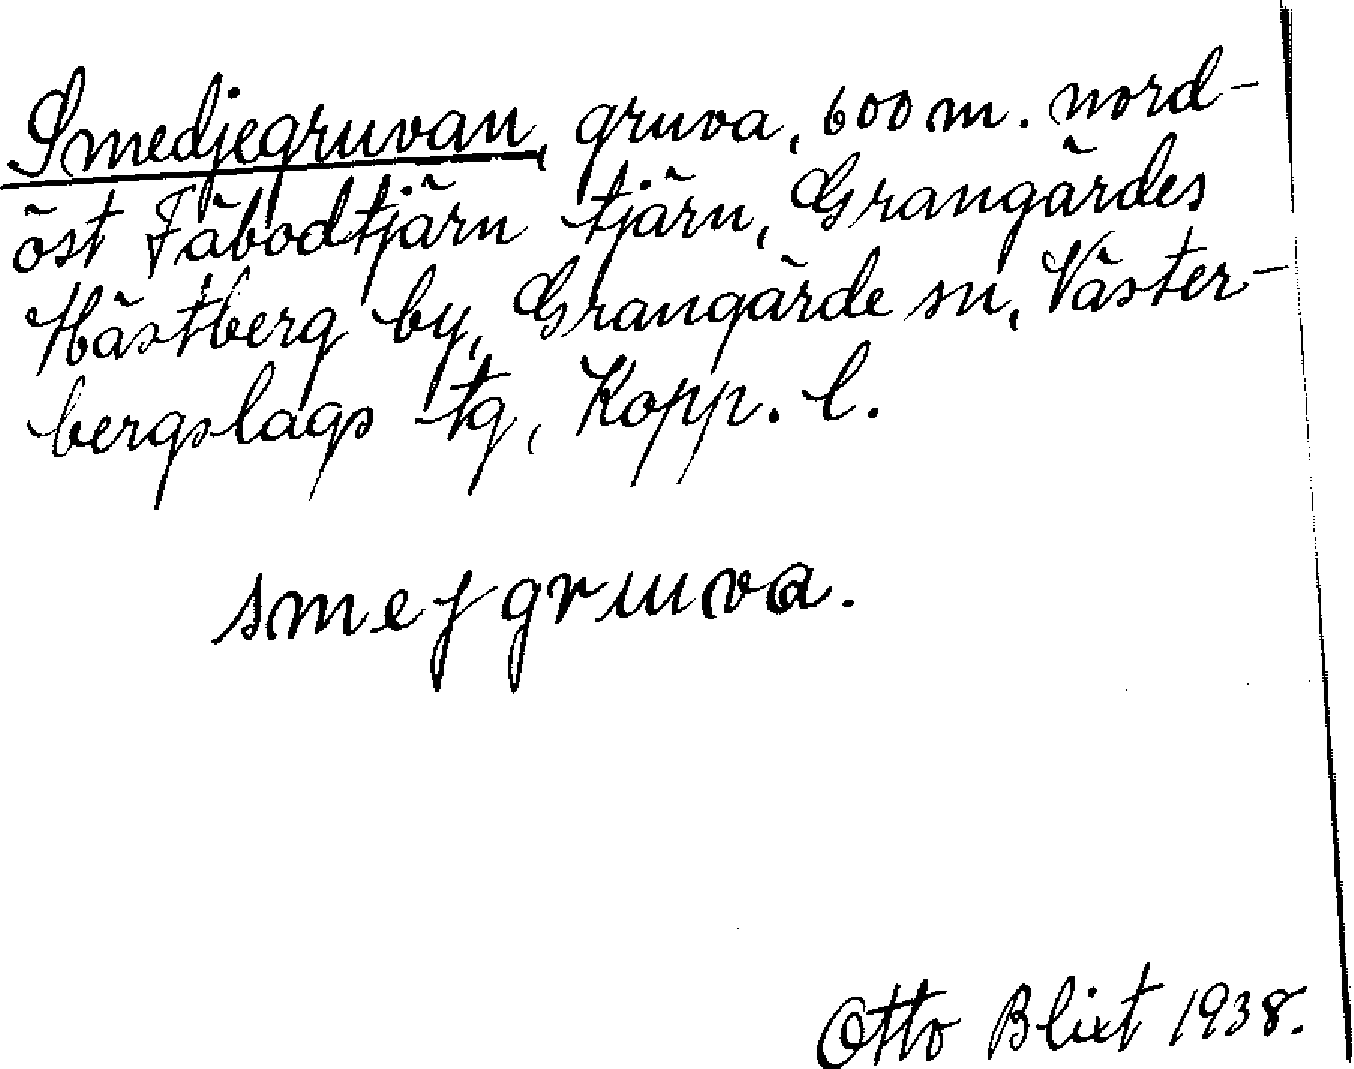 Smedjegruvan, gruva, 600 m. nord-
öst Fäbodtjärn tjärn, Grangärdes
Hästberg by, Grangärde sn, Väster-
bergslags tg, Kopp. l.
smejgruva.
Otto Blixt 1938.